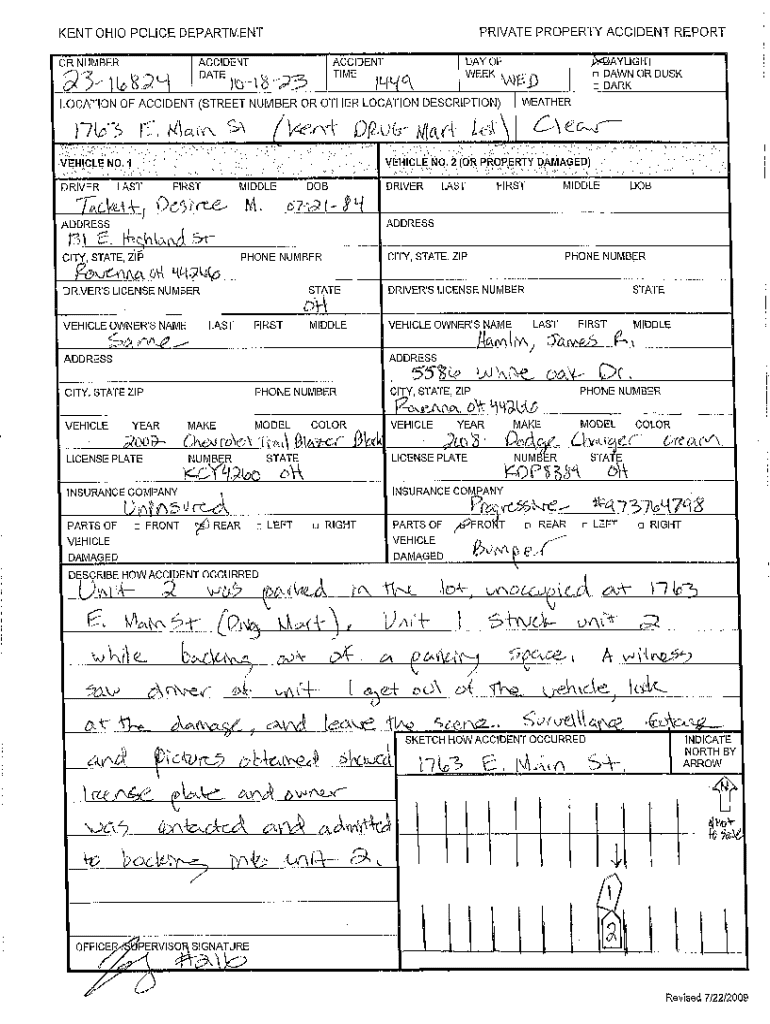 KENT OHIO POLICE DEPARTMENT PRIVATE PROPERTY ACCIDENT REPORT
CR NUMBER ACCIDENT DATE ACCIDENT TIME DAY OF WEEK DAYLIGHT
23-16824 10-18-23 1449 WED DAWN OR DUSK
DARK
LOCATION OF ACCIDENT (STREET NUMBER OR OTHER LOCATION DESCRIPTION) WEATHER
1763 E. Main St (Kent DRUG Mart Lot) Clear
VEHICLE NO. 1 VEHICLE NO. 2 (OR PROPERTY DAMAGED)
DRIVER LAST FIRST MIDDLE DOB DRIVER LAST FIRST MIDDLE DOB
Tackett, Desiree M. 07-21-84
ADDRESS ADDRESS
131 E. Highland St
CITY, STATE, ZIP PHONE NUMBER CITY, STATE, ZIP PHONE NUMBER
Ravenna OH 44266
DRIVER'S LICENSE NUMBER STATE DRIVER'S LICENSE NUMBER STATE
OH
VEHICLE OWNER'S NAME LAST FIRST MIDDLE VEHICLE OWNER'S NAME LAST FIRST MIDDLE
Same Hamlin, James R.
ADDRESS ADDRESS
5586 White oak Dr.
CITY, STATE ZIP PHONE NUMBER CITY, STATE, ZIP PHONE NUMBER
Ravenna OH 44266
VEHICLE YEAR MAKE MODEL COLOR VEHICLE YEAR MAKE MODEL COLOR
2002 Chevrolet Trail Blazer Black 2008 Dodge Charger cream
LICENSE PLATE NUMBER STATE LICENSE PLATE NUMBER STATE
KCY4260 OH KDP8389 OH
INSURANCE COMPANY INSURANCE COMPANY
Uninsured Progressive #973764798
PARTS OF VEHICLE DAMAGED FRONT REAR LEFT RIGHT PARTS OF VEHICLE DAMAGED FRONT REAR LEFT RIGHT
Bumper
DESCRIBE HOW ACCIDENT OCCURRED
Unit 2 was parked in the lot, unoccupied at 1763
E. Main St (Drug Mart). Unit 1 struck unit 2
while backing out of a parking space. A witness
saw driver of unit 1 get out of the vehicle, look
at the damage, and leave the scene. Surveillance footage
and pictures obtained showed
license plate and owner
was contacted and admitted
to backing into unit 2.
SKETCH HOW ACCIDENT OCCURRED INDICATE NORTH BY ARROW
1763 E. Main St.
N
* Not to scale
1
2
OFFICER /SUPERVISOR SIGNATURE
#216
Revised 7/22/2009